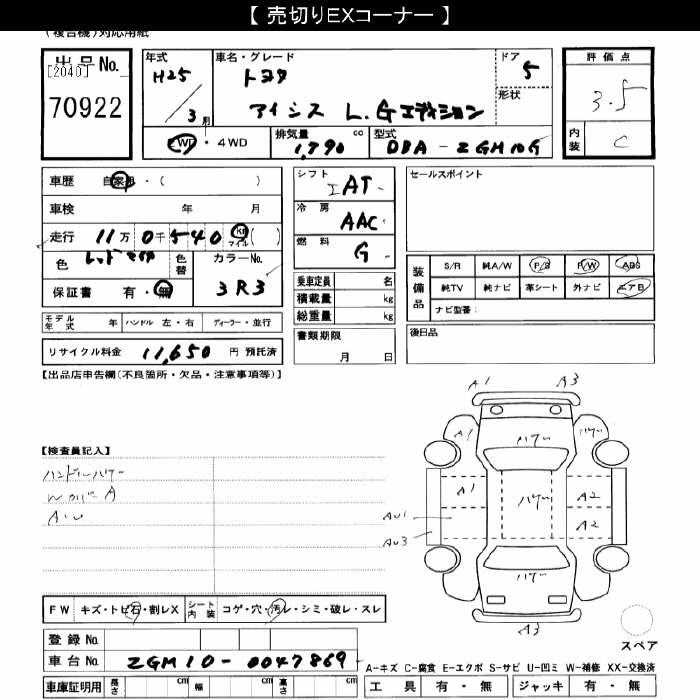 【 売切りEXコーナー 】
(複合機)対応用紙
出品No.
[2040]
70922
年式
H25
3月
車名・グレード
トヨタ
アイシス L.Gエディション
ドア
5
形状
評価点
3.5
内装
C
FWD・4WD
排気量 cc
1,790
型式
DBA-ZGM10G
車歴 自家用・( )
車検 年 月
走行 11万 0千 540 km マイル ( )
色
色替
カラーNo.
3R3
保証書 有・無
シフト
IAT
冷房
AAC
燃料
G
セールスポイント
乗車定員 名
積載量 kg
総重量 kg
装備品
S/R 純A/W P/S P/W ABS
純TV 純ナビ 革シート 外ナビ エアB
ナビ型番:
モデル年式 年 ハンドル 左・右 ディーラー・並行
書類期限
月 日
後日品
リサイクル料金 11,650 円 預託済
【出品店申告欄(不良箇所・欠品・注意事項等)】
A1 A3
A1 ハゲ ハゲ
【検査員記入】
ハンドルハゲ
WカバーA
A・U
A1 ハゲ A2
AU1 A2
AU3
ハゲ
A3
スペア
FW キズ・トビ石・割レX シート内装 コゲ・穴・汚レ・シミ・破レ・スレ
登録No.
車台No. ZGM10-0047869
A-キズ C-腐食 E-エクボ S-サビ U-凹ミ W-補修 XX-交換済
車庫証明用 長さ cm 幅 cm 高さ cm
工具 有・無 ジャッキ 有・無